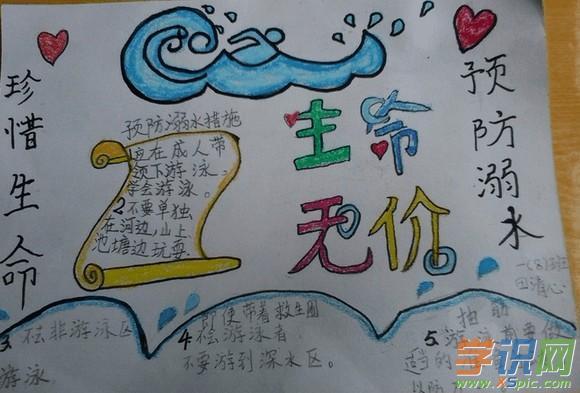 珍惜生命
预防溺水
生命
无价
预防溺水措施
应在成人带
领下游泳。
学会游泳。
2不要单独
在河边,山上
池塘边玩耍
一(8)班
3不去非游泳区
游泳
4即使带着救生圈
不会游泳者
不要游到深水区。
5抽筋
适当的
以防
学识网
www.XSpic.com